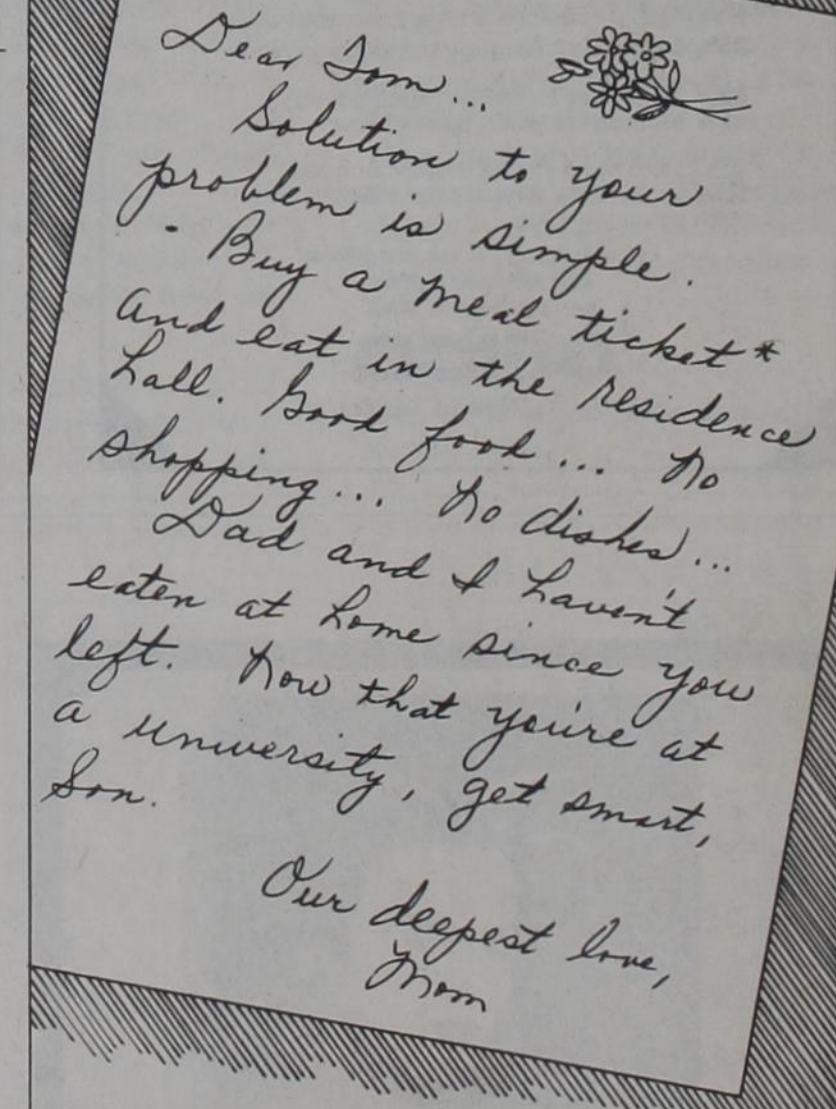 Dear Tom...
Solution to your
problem is simple.
Buy a meal ticket*
and eat in the residence
hall. Good food... no
shopping... no dishes...
Dad and I haven't
eaten at home since you
left. Now that you're at
a university, get smart,
Son.
Our deepest love,
Mom